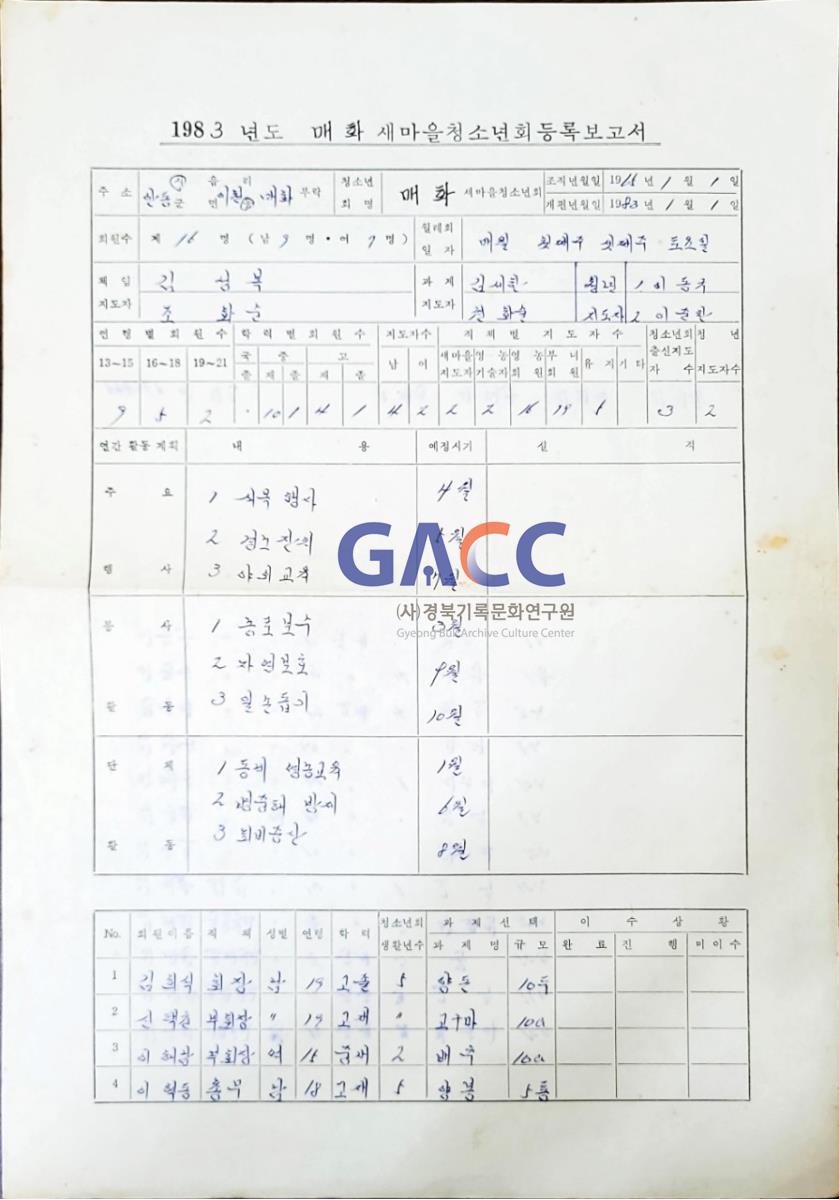 1983 년도 매화 새마을청소년회등록보고서
주 소 안동 시 군 읍 면 리 매화 부락 청소년 회 명 매화 새마을청소년회 조직년월일 19 년 1 월 1 일
개편년월일 1983 년 1 월 1 일
회원수 계 16 명 (남 9 명·여 7 명) 월례회 일 자 매월 첫째주 셋째주 토요일
책 임 지도자 김 과 제 지도자
조 화순 천 화순 지도자 2
연 령 별 회 원 수 학 력 별 회 원 수 지도자수 직 제 별 지 도 자 수 청소년회 출신지도 자 수 청 년 지도자수
13~15 16~18 19~21 국 졸 중 재 졸 고 재 졸 남 여 새마을 지도자 영 농 기술자 영 농 회 원 부 녀 회 원 유 지 기 타
9 5 2 · 10 1 4 1 4 2 2 2 16 19 1 3 2
연간 활동 계획 내 용 예정시기 실 적
주 요 행 사
1 식목 행사 4월
2 경노잔치 5월
3 야외교육 7월
봉 사 활 동
1 농로보수 3월
2 자연보호 9월
3 일손돕기 10월
단 체 활 동
1 동계 영농교육 1월
2 병충해 방제 6월
3 퇴비증산 8월
GACC
(사)경북기록문화연구원
Gyeong Buk Archive Culture Center
No. 회원이름 직 책 성별 연령 학 력 청소년회 생활년수 과 제 선 택 이 수 상 황
과 제 명 규 모 완 료 진 행 미이수
1 김 희식 회장 남 19 고졸 5 양돈 10두
2 신 부회장 " 19 고재 " 고구마 10a
3 이 부회장 여 15 중재 2 배추 10a
4 이 총무 남 18 고재 5 양봉 5통